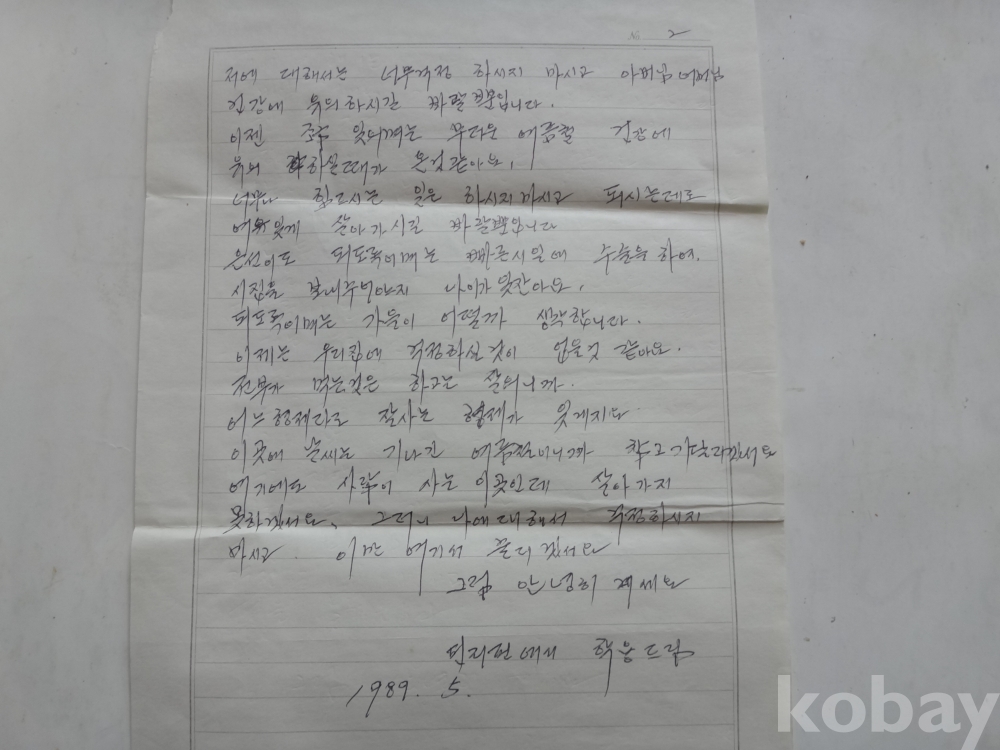 № 2
저에 대해서는 너무걱정 하시지 마시고 아버님 어머님
건강에 유의하시길 바랄뿐입니다.
이젠 무더운 여름철 건강에
유의 하실때가 온것같아요.
너무나 힘드시는 일은 하시지마시고 되시는데로
여유있게 살아가시길 바랄뿐입니다
은선이도 되도록이며는 빠른시일에 수술을 하여.
시집을 보내주어야지 나이가 있잔아요.
되도록이며는 가을이 어떨까 생각합니다.
이제는 우리집에 걱정하실것이 없을것 같아요.
전부가 먹는것은 하고는 살으니까.
어느형제다로 잘사는 형제가 있게지요
이곳에 날씨는 기나긴 여름철이니까 참고가
여기에도 사람이 사는 이곳인데 살아가지
못하겠서요. 그러니 나에대해서 걱정하시지
마시고. 이만 여기서 줄이겠서요
그럼 안녕히 계세요
학웅드림
1989. 5.
kobay